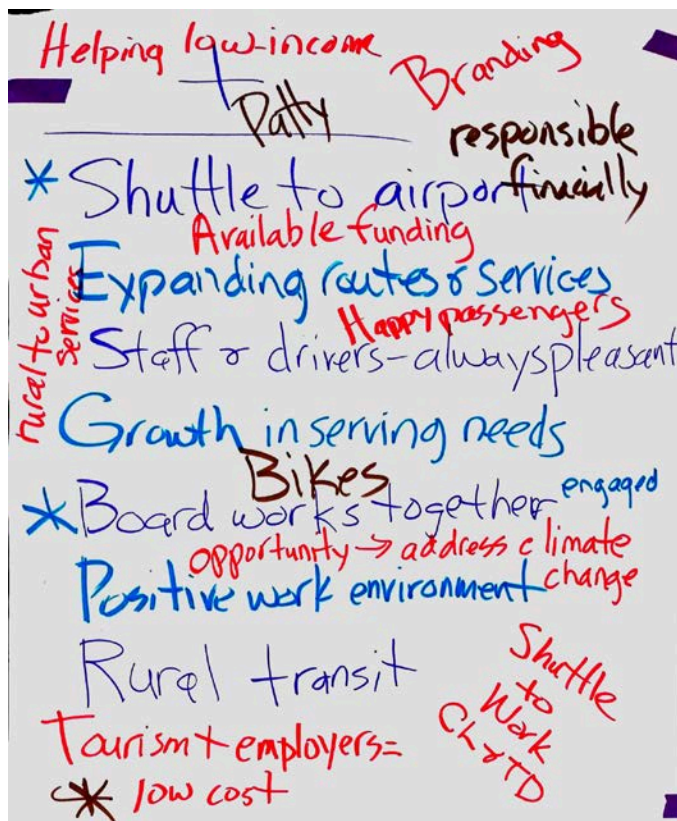 Helping low-income
+
Patty
Branding
responsible
finacially
* Shuttle to airport
Available funding
Expanding routes & services
rural to urban
services
Happy passengers
Staff & drivers - always pleasant
Growth in serving needs
Bikes
* Board works together engaged
opportunity → address climate
change
Positive work environment
Rural transit
Shuttle
to
Work
CL & TD
Tourism + employers =
* low cost